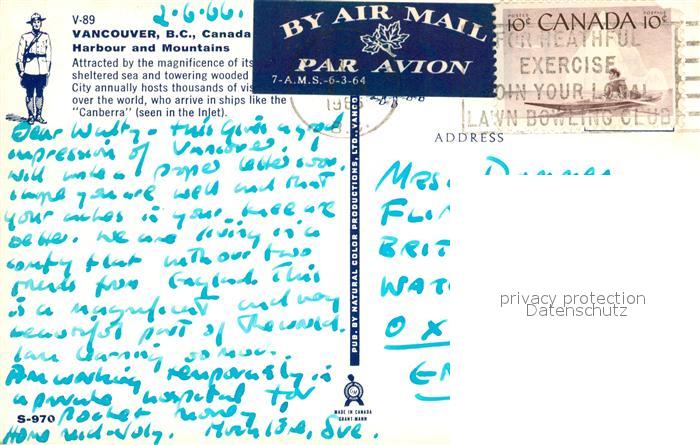 2-6-66.
V-89
VANCOUVER, B.C., Canada
Harbour and Mountains
Attracted by the magnificence of its
sheltered sea and towering wooded
City annually hosts thousands of vis
over the world, who arrive in ships like the
"Canberra" (seen in the Inlet).
BY AIR MAIL
PAR AVION
7-A.M.S.-6-3-64
POSTES POSTAGE
10¢ CANADA 10¢
FOR HEATHFUL
EXERCISE
JOIN YOUR LOCAL
LAWN BOWLING CLUB
ADDRESS
Dear Wally - this gives a good
impression of Vancouver.
Will write a proper letter soon.
I hope you are well and that
your aches in your knee are
better. We are living in a
comfy flat with our two
friends from England. This
is a magnificent and very
beautiful part of the world.
I am learning so much.
Am working temporarily in
a private hospital for
pocket money!
Home mid-July. Much love, Sue.
MRS.
FLI
BRIT
WAT
OX
EN
PUB. BY NATURAL COLOR PRODUCTIONS, LTD., VANCO
MADE IN CANADA
GRANT-MANN
S-970
privacy protection
Datenschutz